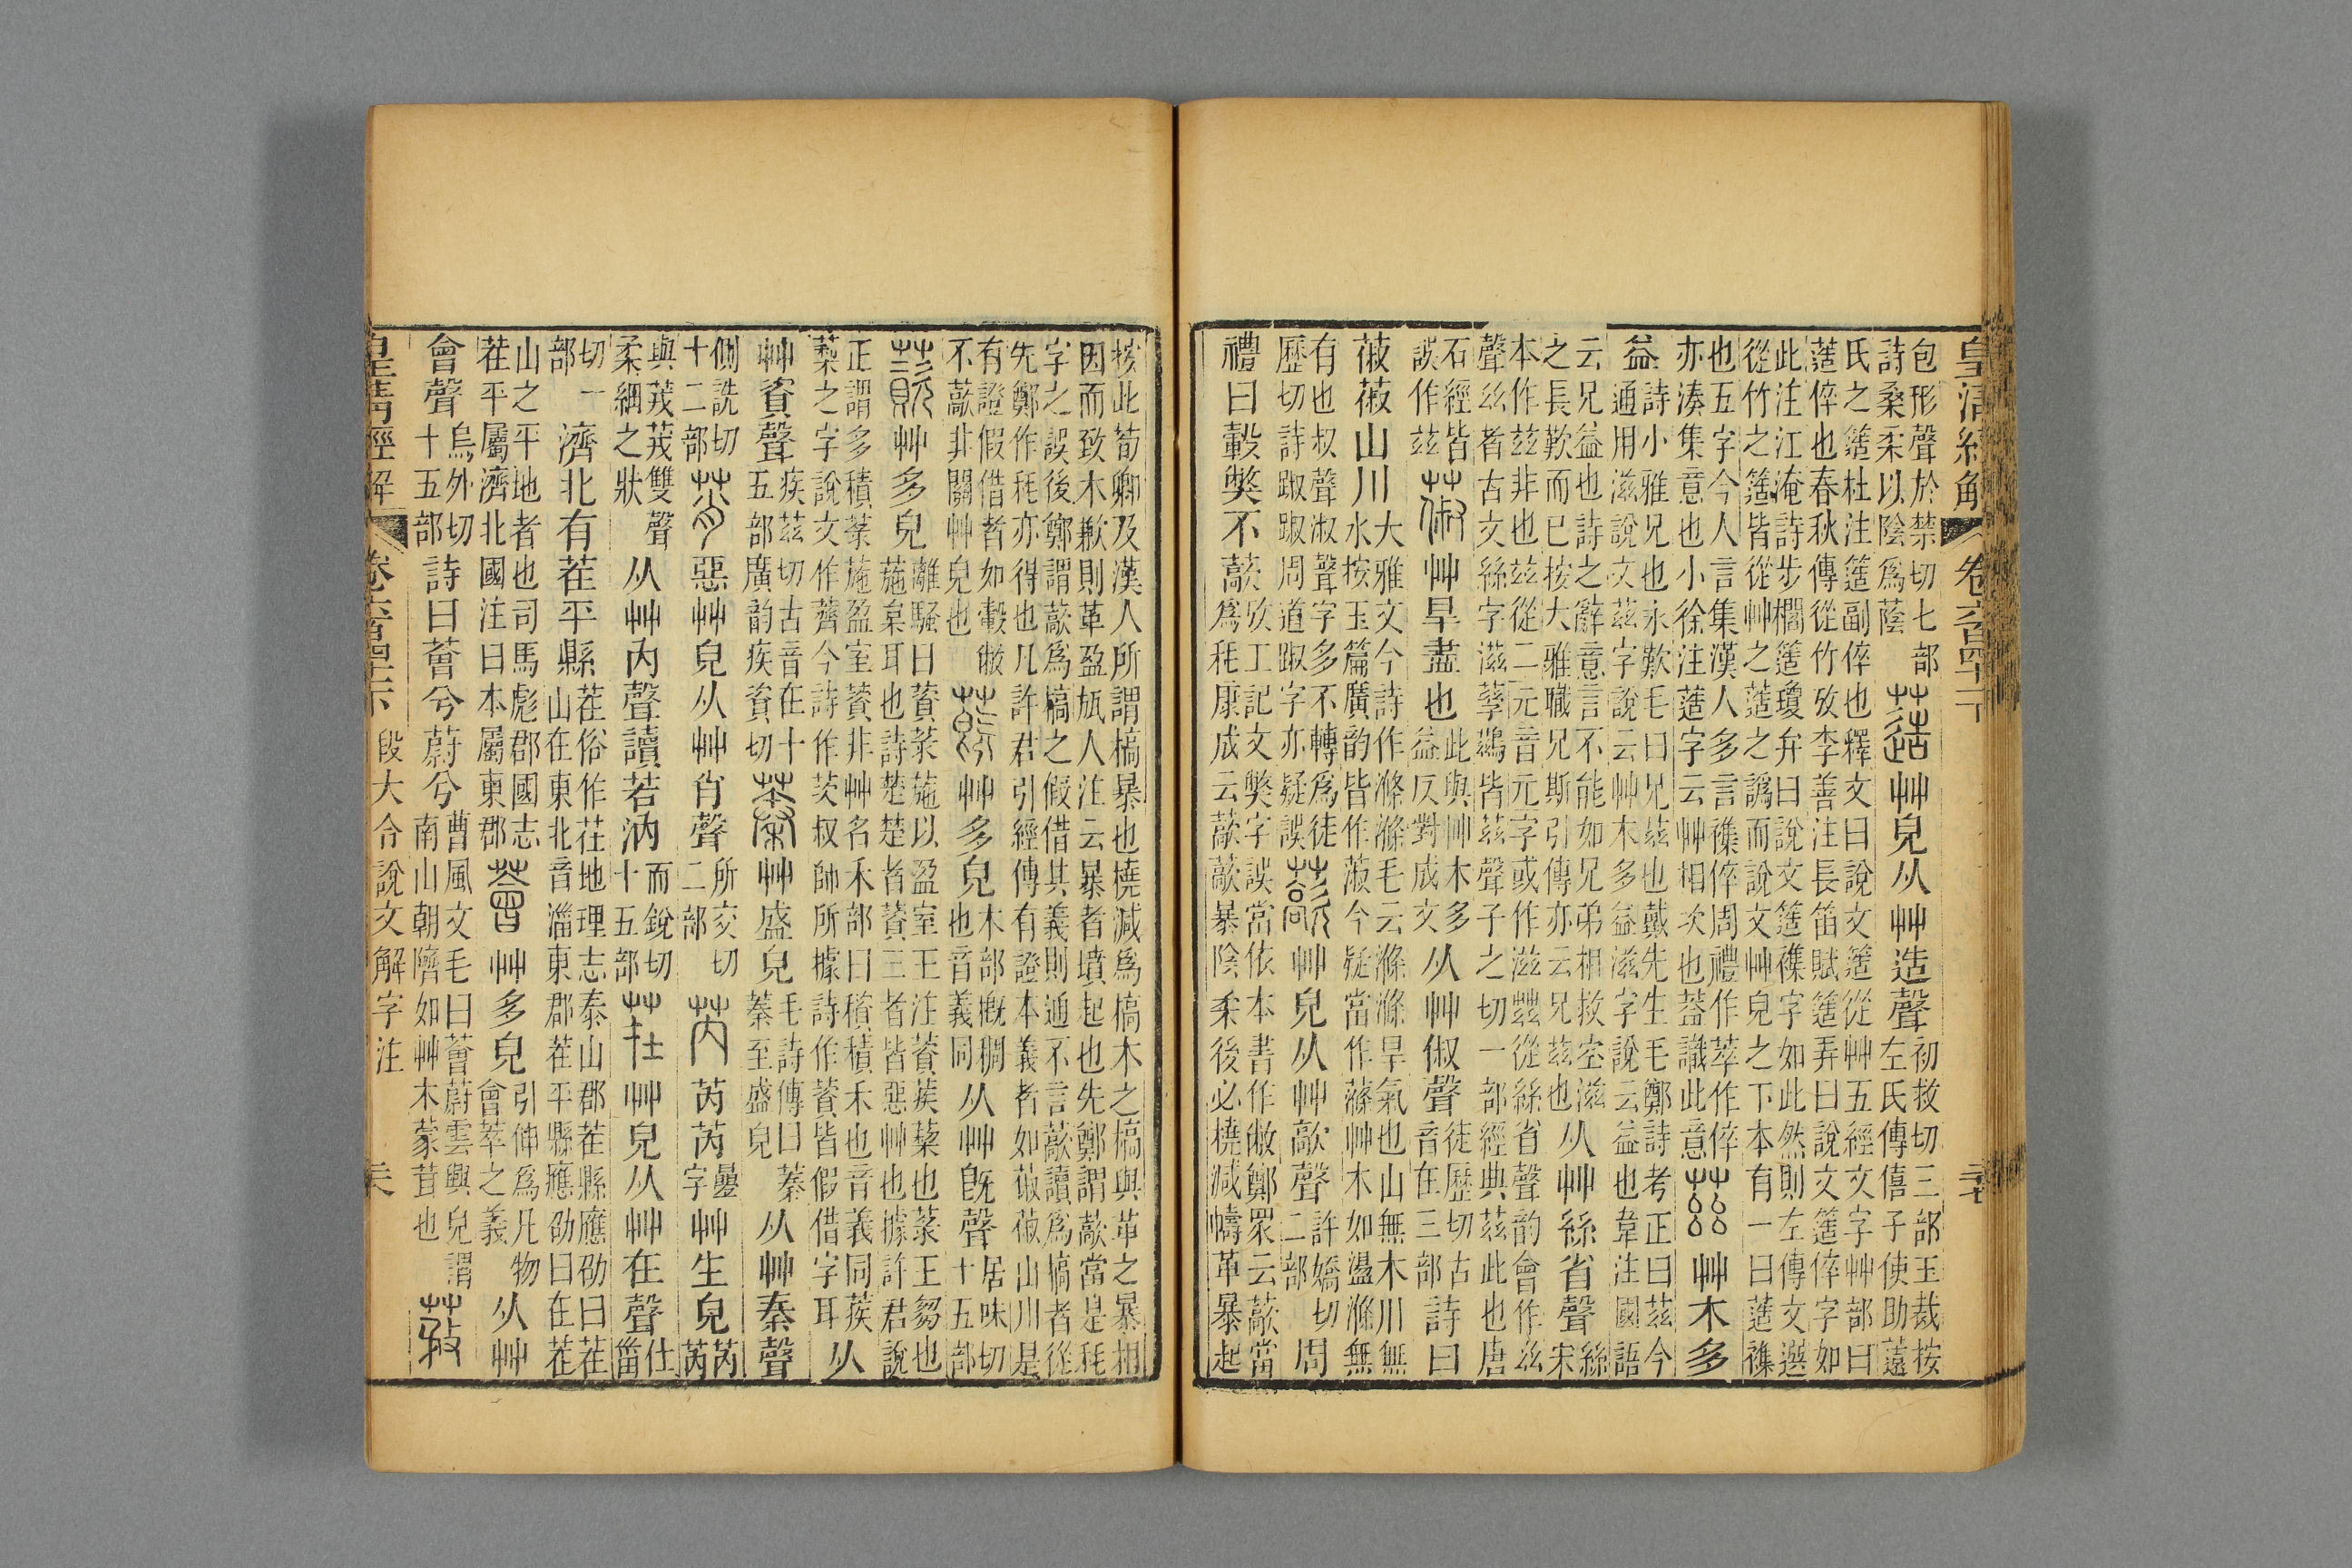 皇清經解 卷六百四十一下 二十七
包形聲於禁切七部
詩桑柔以陰爲蔭
蓪艸皃从艸造聲
初救切三部玉裁按
左氏傳僖子使助薳
氏之簉杜注簉副倅也釋文曰說文簉從艸五經文字艸部曰
莲倅也春秋傳從竹攷李善注長笛賦簉弄曰說文簉倅字如
此注江淹詩步櫩簉瓊弁曰說文簉襍字如此然則左傳文選
從竹之簉皆從艸之莲之譌而說文艸皃之下本有一曰莲襍
也五字今人言集漢人多言襍倅周禮作萃作倅
亦湊集意也小徐注莲字云艸相次也蓋識此意
茲艸木多
益
詩小雅兄也永歎毛曰兄茲也戴先生毛鄭詩考正曰茲今
通用滋說文茲字說云艸木多益滋字說云益也韋注國語
云兄益也詩之辭意言不能如兄弟相救空滋
之長歎而已按大雅職兄斯引傳亦云兄茲也
从艸絲省聲
絲
宋
本作茲非也茲從二元音元字或作滋茲從絲省聲韵會作茲
聲茲者古文絲字滋孳鷀皆茲聲子之切一部經典茲此也唐
石經皆
誤作茲
蔋艸旱盡也
此與艸木多
益反對成文
从艸俶聲
徒歷切古
音在三部
詩曰
蔋蔋山川
大雅文今詩作滌滌毛云滌滌旱氣也山無木川無
水按玉篇廣韵皆作蔋今疑當作藗艸木如盪滌無
有也叔聲淑聲字多不轉爲徒
歷切詩踧踧周道踧字亦疑誤
藃艸皃从艸歊聲
許嬌切
二部
周
禮曰轂獘不藃
攷工記文獘字誤當依本書作敝鄭眾云藃當
爲秏康成云藃藃暴陰柔後必橈減幬革暴起
按此荀卿及漢人所謂槁暴也橈減爲槁木之槁與革之暴相
因而致木歉則革盈瓬人注云暴者墳起也先鄭謂藃當是秏
字之誤後鄭謂藃爲槁之假借其義則通不言藃讀爲槁者從
先鄭作秏亦得也凡許君引經傳有證本義者如蔋蔋山川是
有證假借者如轂敝
不藃非關艸皃也
蔇艸多皃
木部槪稠
也音義同
从艸旣聲
居味切
十五部
薋艸多皃
離騷曰薋菉葹以盈室王注薋蒺藜也菉王芻也
葹枲耳也詩楚楚者薋三者皆惡艸也據許君說
正謂多積菉葹盈室薋非艸名禾部曰穧積禾也音義同蒺
蔾之字說文作薺今詩作茨叔師所據詩作薋皆假借字耳
从
艸資聲
疾茲切古音在十
五部廣韵疾資切
蓁艸盛皃
毛詩傳曰蓁
蓁至盛皃
从艸秦聲
側詵切
十二部
莦惡艸皃从艸肖聲
所交切
二部
芮芮芮
疊
字
艸生皃
芮
芮
與茙茙雙聲
柔細之狀
从艸內聲讀若汭
而銳切
十五部
茬艸皃从艸在聲
仕
甾
切一
部
濟北有茬平縣
茬俗作茌地理志泰山郡茬縣應劭曰茬
山在東北音淄東郡茬平縣應劭曰在茬
山之平地者也司馬彪郡國志
茬平屬濟北國注曰本屬東郡
薈艸多皃
引伸爲凡物
會萃之義
从艸
會聲
烏外切
十五部
詩曰薈兮蔚兮
曹風文毛曰薈蔚雲興皃謂
南山朝隮如艸木蒙茸也
蓩
皇清經解 卷六百四十一下 段大令說文解字注 二十八